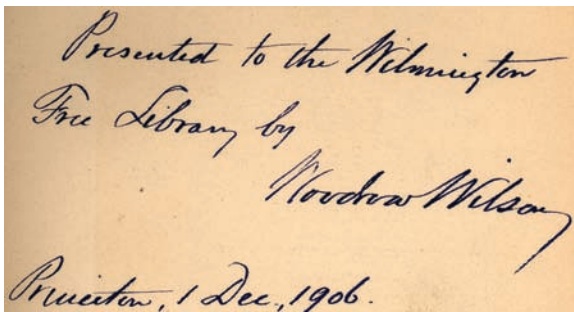 Presented to the Wilmington
Free Library by
Woodrow Wilson
Princeton, 1 Dec., 1906.